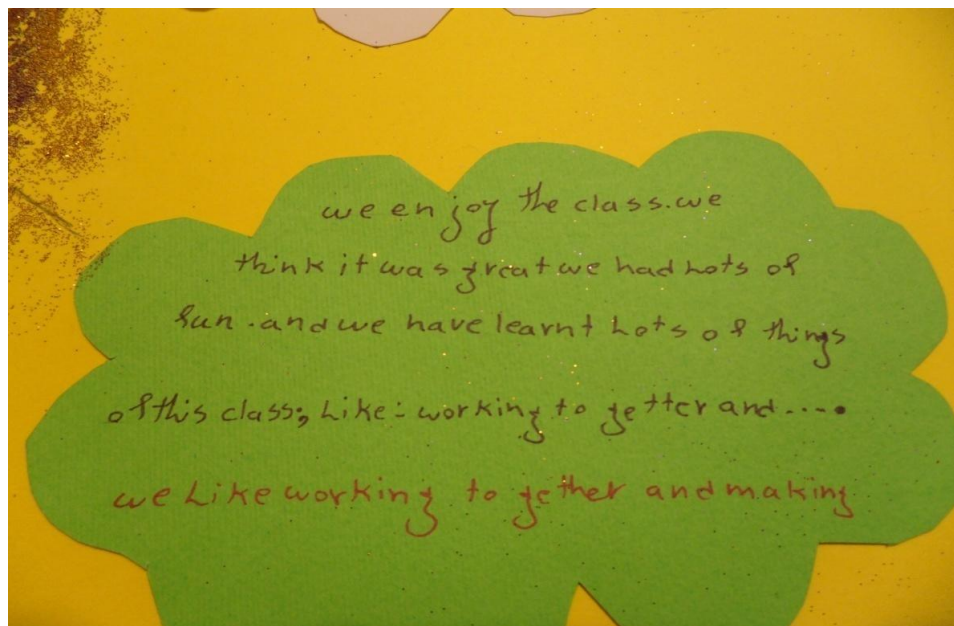 we enjoy the class.we
think it was great we had Lots of
fun.and we have learnt Lots of things
of this class; Like:working to getter and.....
we Like working to gether and making